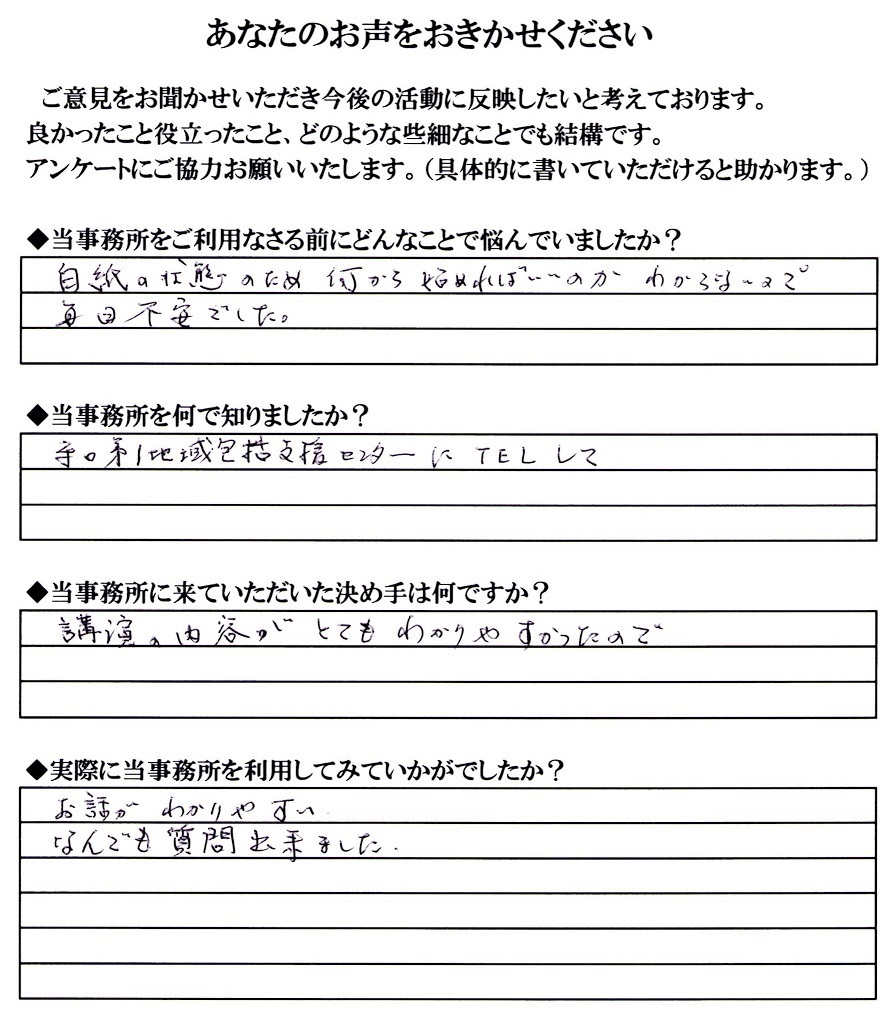 あなたのお声をおきかせください
ご意見をお聞かせいただき今後の活動に反映したいと考えております。
良かったこと役立ったこと、どのような些細なことでも結構です。
アンケートにご協力お願いいたします。（具体的に書いていただけると助かります。）
◆当事務所をご利用なさる前にどんなことで悩んでいましたか？
白紙の状態のため 何から始めればいいのか わからないので
毎日不安でした。
◆当事務所を何で知りましたか？
第1地域包括支援センターに TELして
◆当事務所に来ていただいた決め手は何ですか？
講演の内容が とてもわかりやすかったので
◆実際に当事務所を利用してみていかがでしたか？
お話が わかりやすい
なんでも質問出来ました.